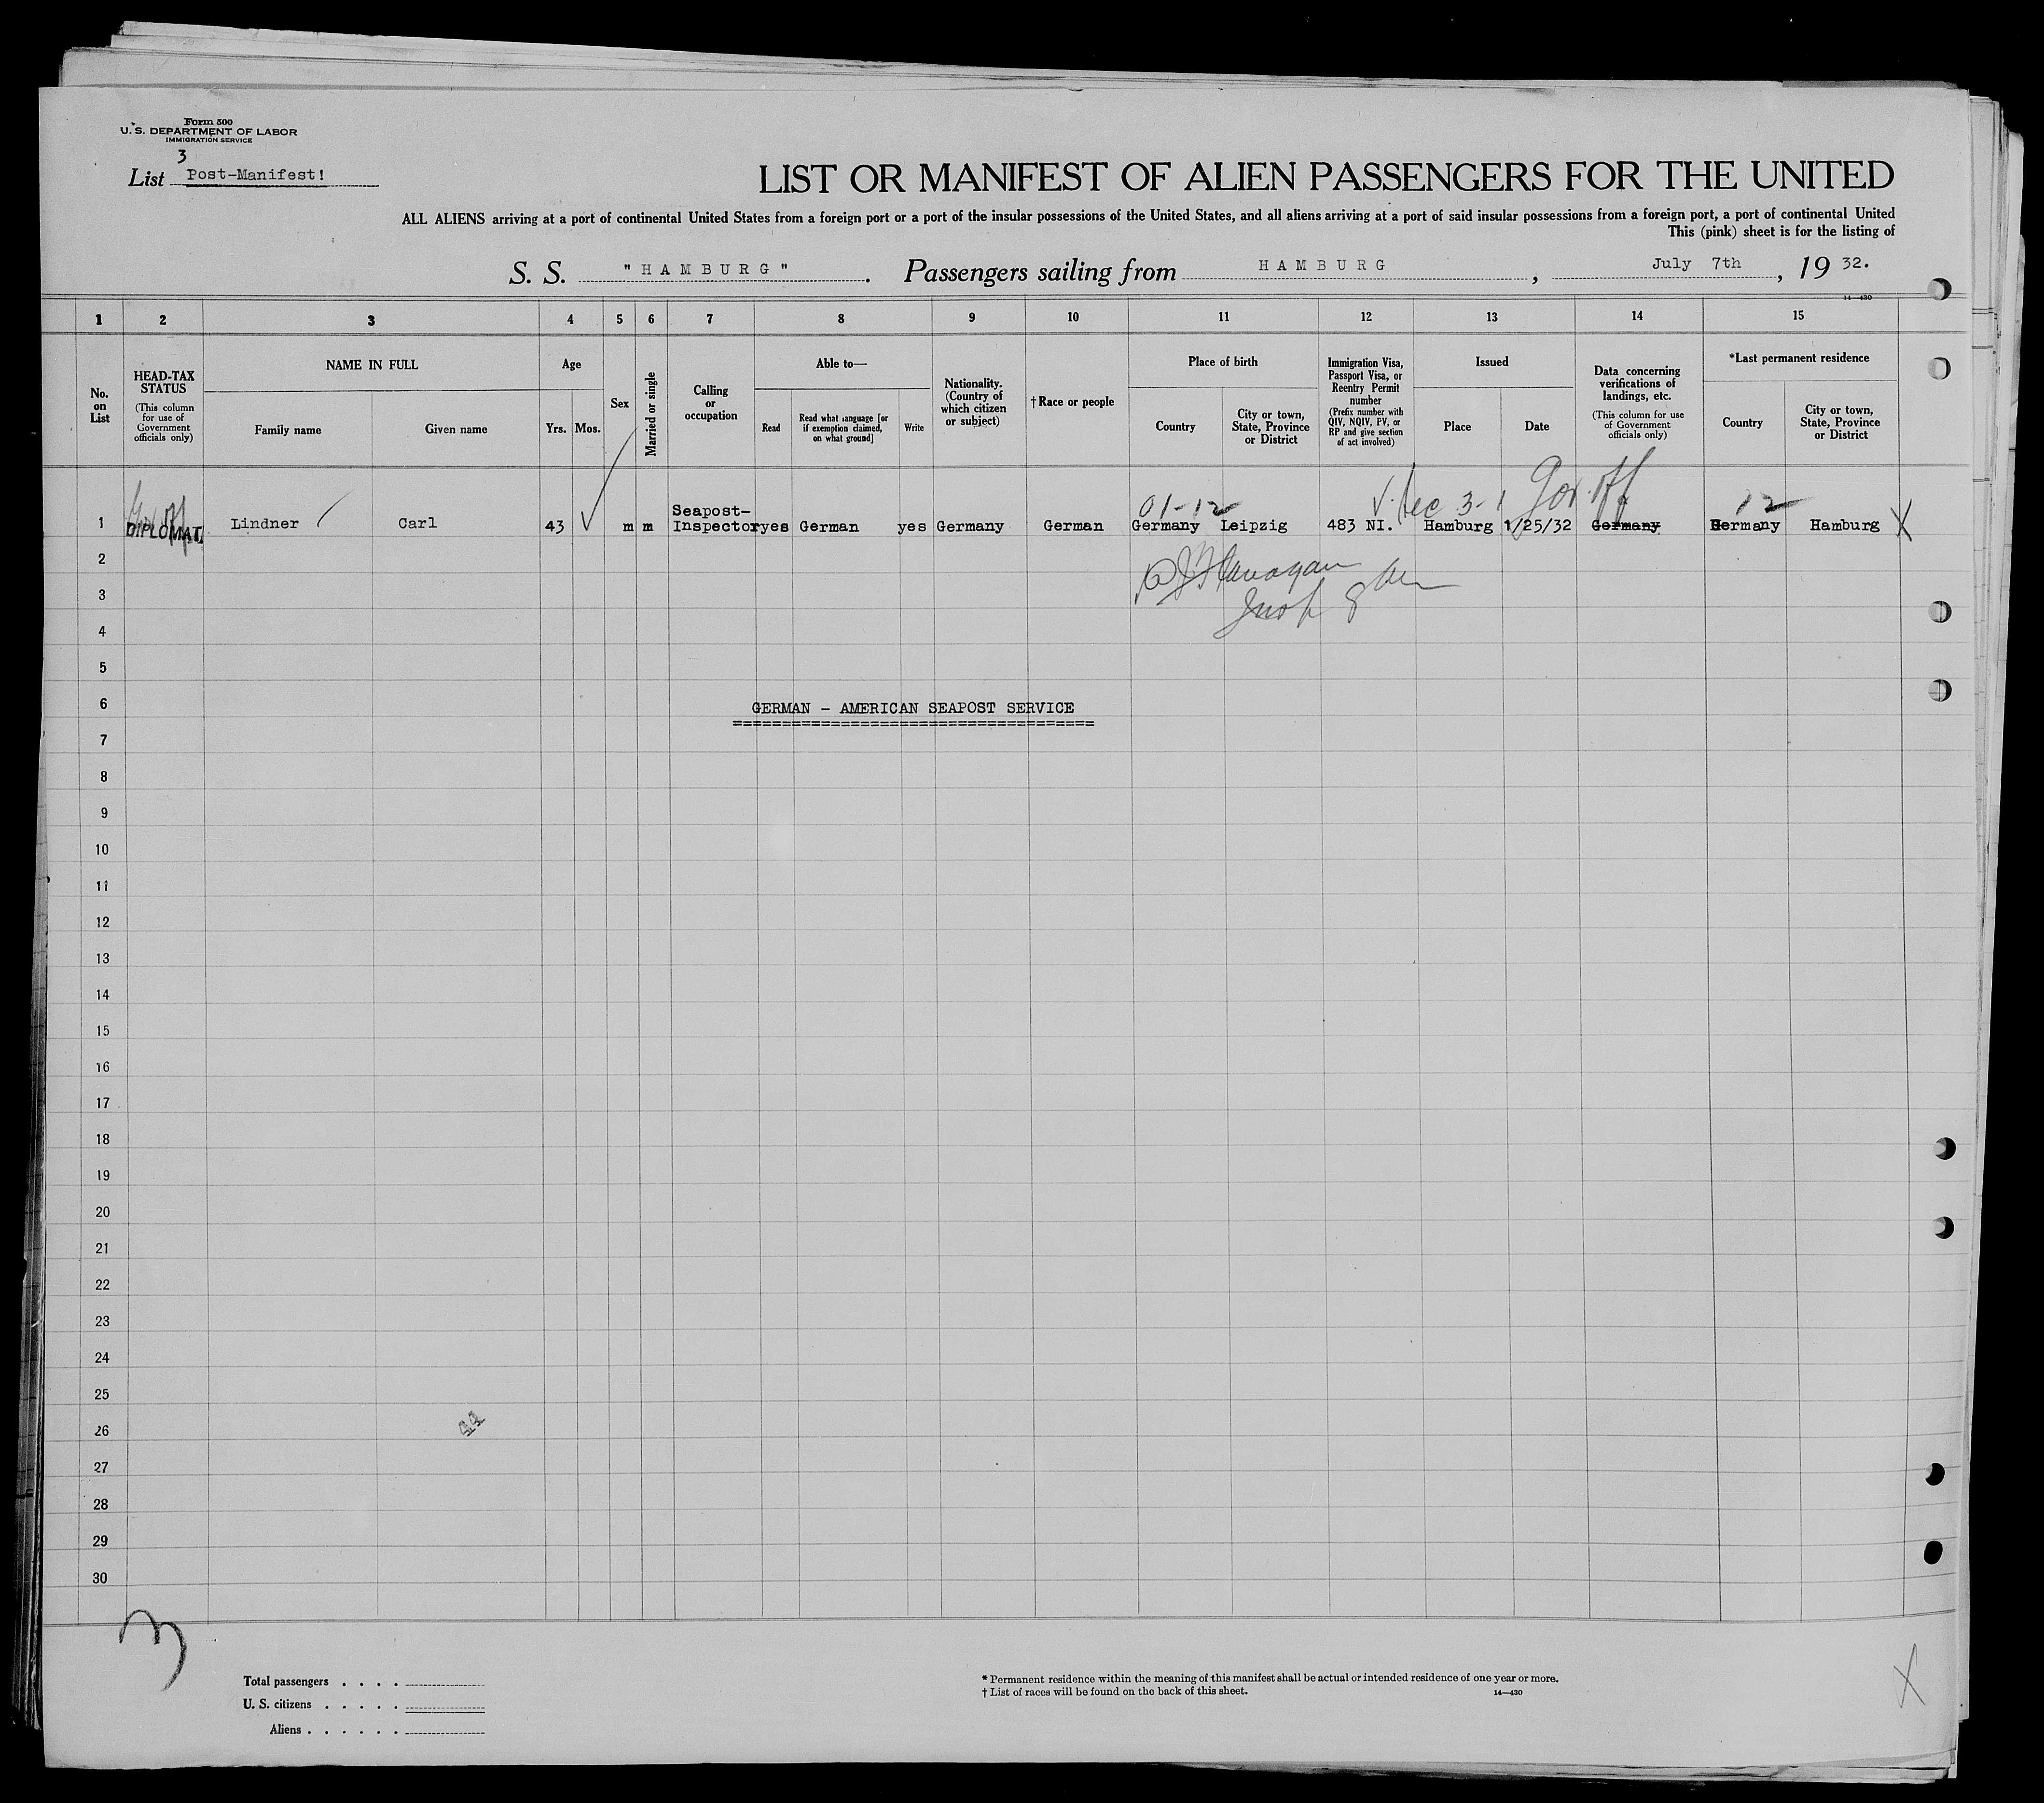 Form 500
U. S. DEPARTMENT OF LABOR
IMMIGRATION SERVICE
3
List Post-Manifest!
LIST OR MANIFEST OF ALIEN PASSENGERS FOR THE UNITED
ALL ALIENS arriving at a port of continental United States from a foreign port or a port of the insular possessions of the United States, and all aliens arriving at a port of said insular possessions from a foreign port, a port of continental United
This (pink) sheet is for the listing of
S. S. "HAMBURG". Passengers sailing from HAMBURG, July 7th, 19 32.
14—430
1 2 3 4 5 6 7 8 9 10 11 12 13 14 15
No. on List
HEAD-TAX STATUS
(This column for use of Government officials only)
NAME IN FULL
Family name Given name
Age
Yrs. Mos.
Sex
Married or single
Calling or occupation
Able to—
Read
Read what language [or if exemption claimed, on what ground]
Write
Nationality. (Country of which citizen or subject)
†Race or people
Place of birth
Country
City or town, State, Province or District
Immigration Visa, Passport Visa, or Reentry Permit number
(Prefix number with QIV, NQIV, PV, or RP and give section of act involved)
Issued
Place Date
Data concerning verifications of landings, etc.
(This column for use of Government officials only)
*Last permanent residence
Country
City or town, State, Province or District
01-12 Sec 3-1 Gov. Off 12
1 DIPLOMAT Lindner Carl 43 m m Seapost-Inspector yes German yes Germany German Germany Leipzig 483 NI. Hamburg 1/25/32 Germany Germany Hamburg X
2
Flanagan
3
Insp
4
5
6
GERMAN - AMERICAN SEAPOST SERVICE
7
8
9
10
11
12
13
14
15
16
17
18
19
20
21
22
23
24
25
26
27
28
29
30
3
Total passengers . . . .
U. S. citizens . . . . .
Aliens . . . . . .
* Permanent residence within the meaning of this manifest shall be actual or intended residence of one year or more.
† List of races will be found on the back of this sheet.
14—430
X